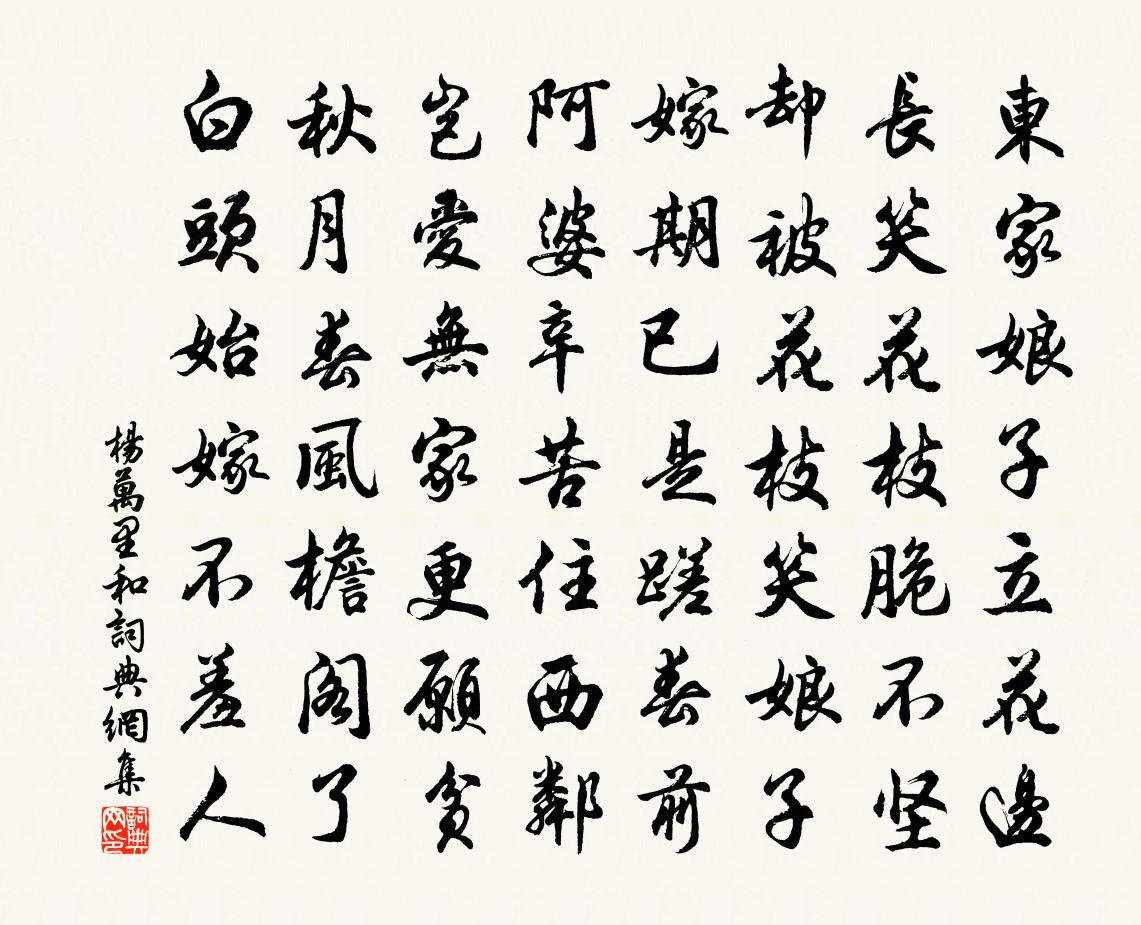 東家娘子立花邊
長笑花枝脆不坚
却被花枝笑娘子
嫁期已是蹉春前
阿婆辛苦住西鄰
豈愛無家更願貧
秋月春風檐閣了
白頭始嫁不羞人
楊萬里和詞典網集
詞典
网印